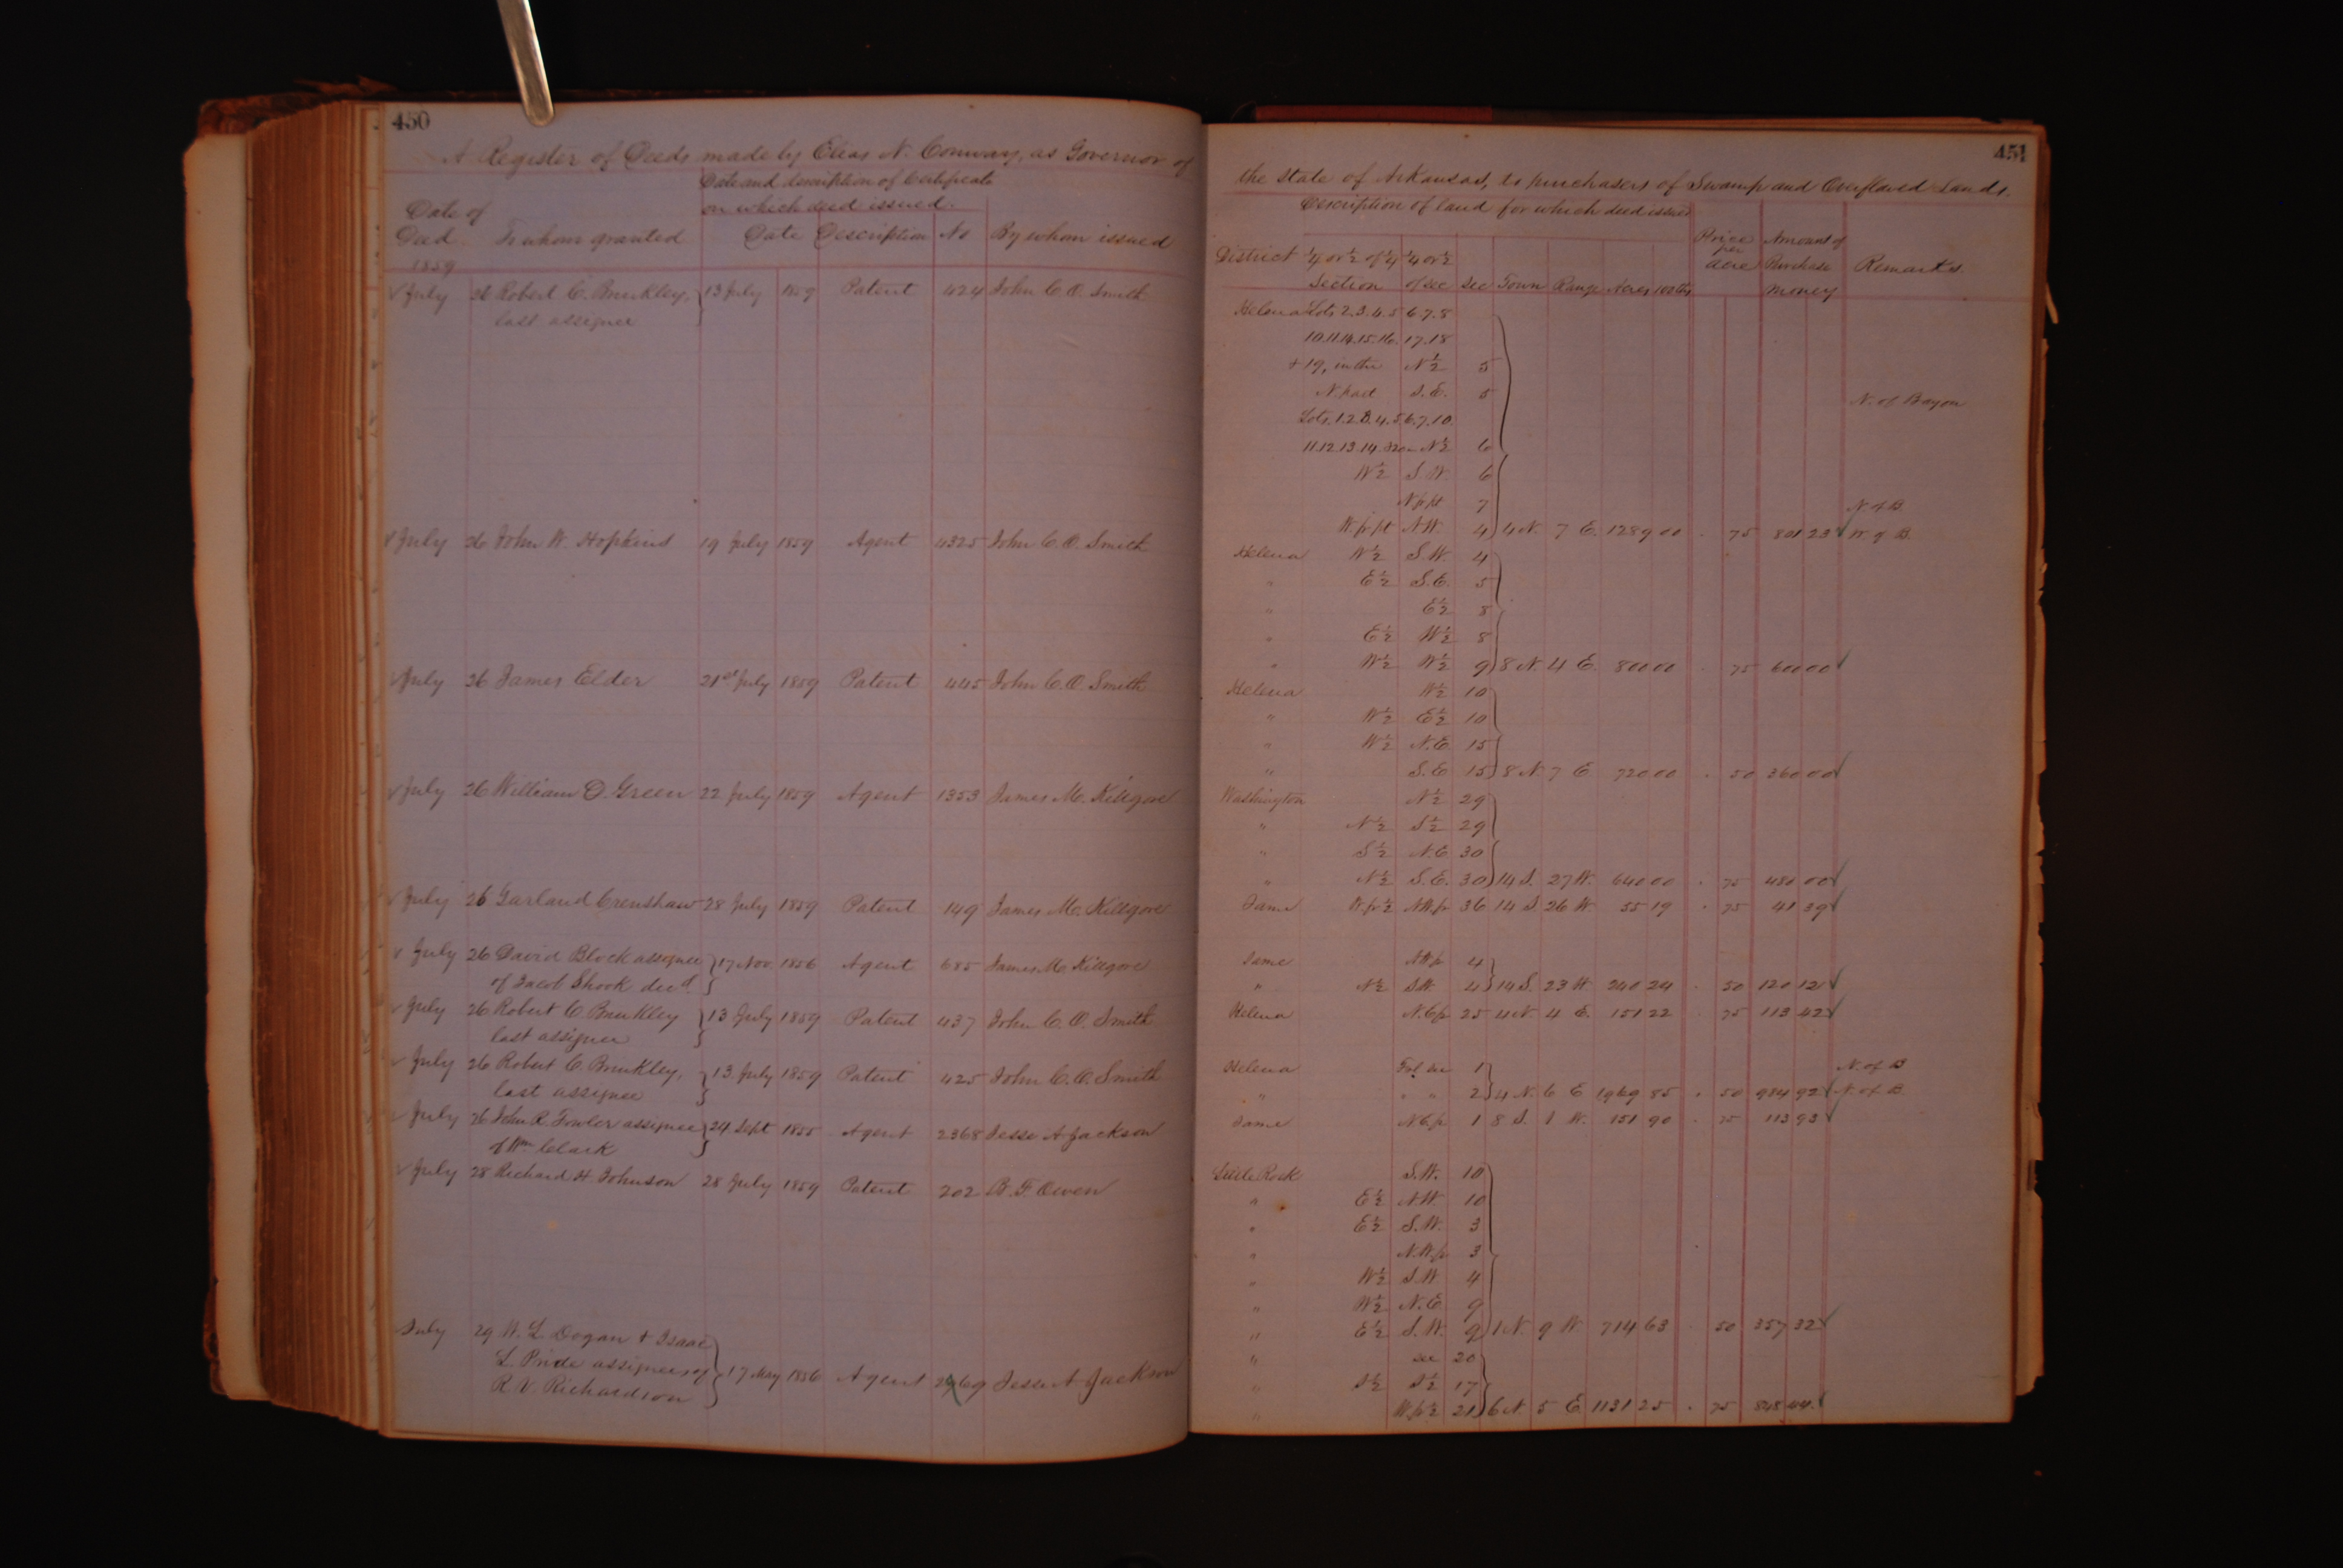 450
A Register of Deeds made by Elias N. Conway, as Governor of
Date and description of Certificate
on which deed issued.
Date of
Deed To whom granted Date Description No By whom issued
1859
July 26 Robert C. Brinkley, 13 July 1859 Patent 424 John C. O. Smith
last assignee
July 26 John W. Hopkins 19 July 1859 Agent 4325 John C. O. Smith
July 26 James Elder 21st July 1859 Patent 445 John C. O. Smith
July 26 William O. Green 22 July 1859 Agent 1353 James M. Killgore
July 26 Garland Crenshaw 28 July 1859 Patent 149 James M. Killgore
July 26 David Block assignee 17 Nov. 1856 Agent 685 James M. Killgore
of Jacob Shook decd
July 26 Robert C. Brinkley 13 July 1859 Patent 437 John C. O. Smith
last assignee
July 26 Robert C. Brinkley, 13 July 1859 Patent 425 John C. O. Smith
last assignee
July 26 John R. Fowler assignee 24 Sept 1855 Agent 2368 Jesse A Jackson
of Wm Clark
July 28 Richard H. Johnson 28 July 1859 Patent 202 B. F. Owen
July 29 W. L. Dogan & Isaac
L. Pride assignees of 17 May 1856 Agent 2969 Jesse A Jackson
R. V. Richardson
451
the State of Arkansas, to purchasers of Swamp and Overflowed Lands.
Description of land for which deed issued
Price Amount of
District ¼ or ½ of ¼ ¼ or ½ per acre Purchase Remarks.
Section of sec Sec Town Range Acres 100ths money
Helena Lots 2.3.4.5 6.7.8
10.11.14.15.16. 17.18
+ 19, in the N½ 5
N. part S.E. 5 N. of Bayou
Lots. 1.2.3.4.5 6.7.10.
11.12.13.14. N½ 6
W½ S.W. 6
N pt 7 N of B.
W. pt N.W. 4 4 N. 7 E. 1289 00 . 75 801 23 W. of B.
Helena N½ S.W. 4
" E½ S.E. 5
" E½ 8
" E½ W½ 8
" W½ W½ 9 8 N. 4 E. 800 00 . 75 600 00
Helena W½ 10
" W½ E½ 10
" W½ N.E. 15
" S.E 15 8 N. 7 E 720 00 . 50 360 00
Washington N½ 29
" N½ S½ 29
" S½ N.E 30
" N½ S.E. 30 14 S. 27 W. 640 00 . 75 480 00
Same W.fr½ N.W.fr 36 14 S. 26 W. 55 19 . 75 41 39
Same N.W.fr 4
" N½ S.W. 4 14 S. 23 W 240 24 . 50 120 12
Helena N.E.fr 25 4 N. 4 E. 151 22 75 113 42
Helena Frl sec 1 N. of B
" " " 2 4 N. 6 E 1969 85 . 50 984 92 N. of B
Same N.E.fr 1 8 S. 1 W. 151 90 . 75 113 93
Little Rock S.W. 10
" E½ N.W. 10
" E½ S.W. 3
" N.W.fr 3
" W½ S.W 4
" W½ N.E. 9
" E½ S.W. 9 1 N. 9 W 714 63 . 50 357 32
" sec 20
" S½ S½ 17
" W.fr½ 21 6 N. 5 E 1131 25 . 75 848 44